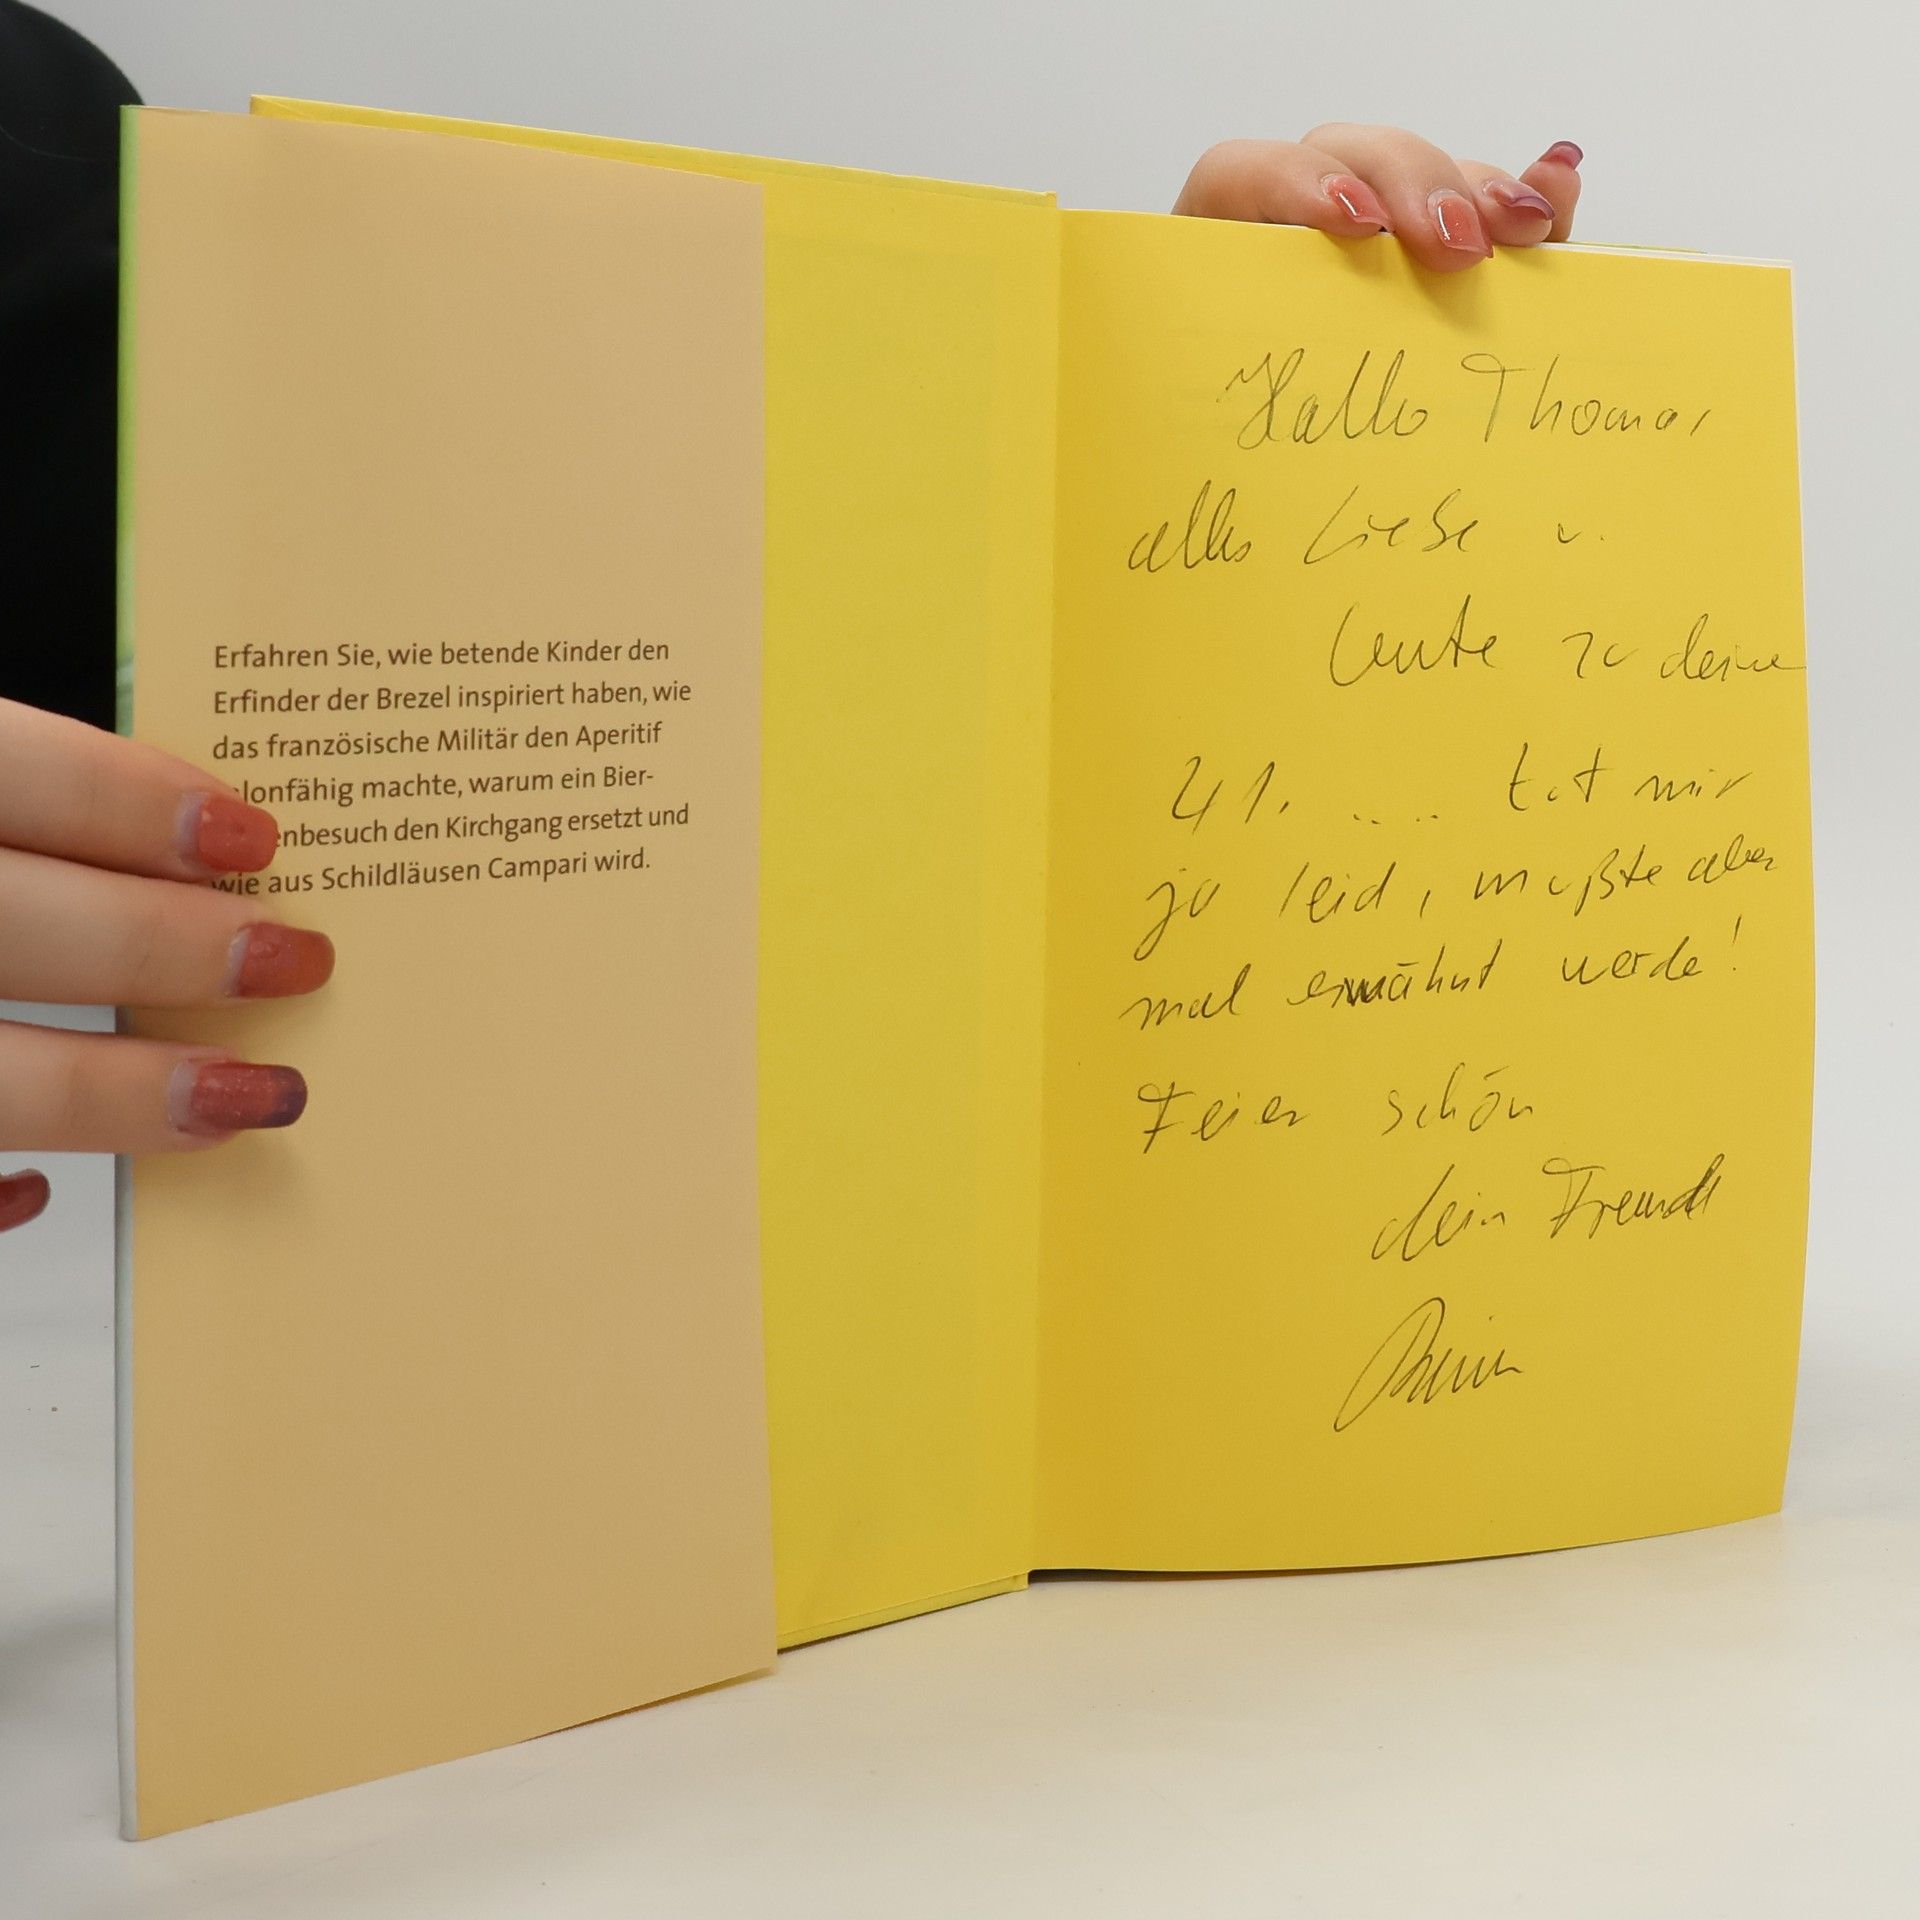 Erfahren Sie, wie betende Kinder den
Erfinder der Brezel inspiriert haben, wie
das französische Militär den Aperitif
lonfähig machte, warum ein Bier-
nbesuch den Kirchgang ersetzt und
wie aus Schildläusen Campari wird.
Hallo Thomas
alles Liebe u.
zu deine
41. .... tut mir
ja leid, mußte aber
mal erwähnt werde!
Feier schön
dein Freund